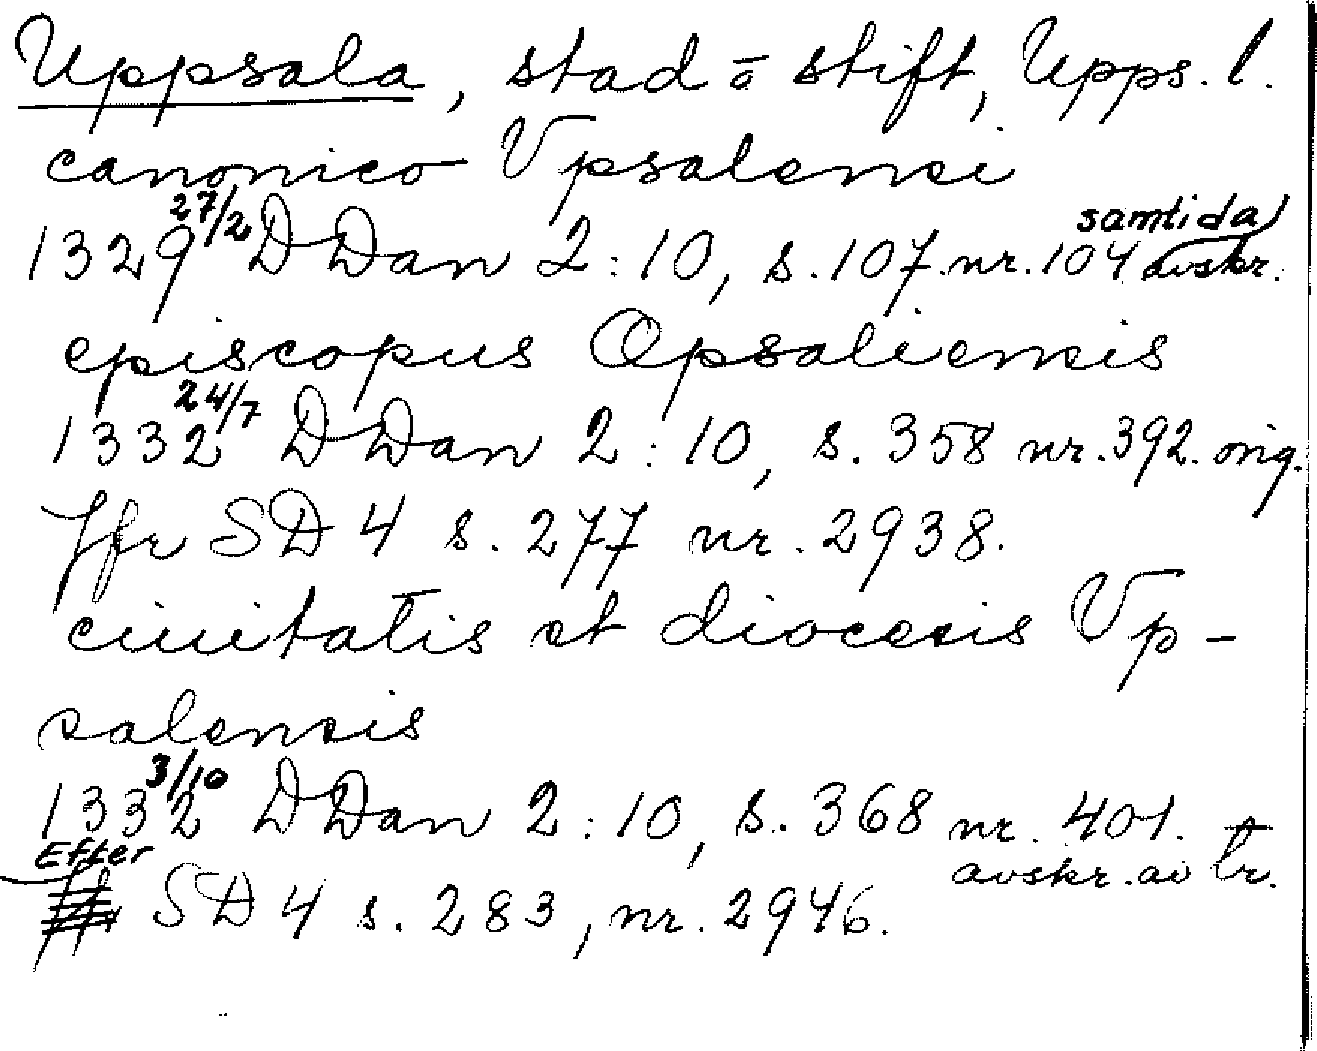 Uppsala, stad o stift, Upps. l.
canonico Vpsalensi
1329 27/2 DDan 2:10, s. 107 nr. 104 samtida avskr.
episcopus Opsaliensis
1332 24/7 DDan 2:10, s. 358 nr. 392. orig.
Jfr SD 4 s. 277 nr. 2938.
ciuitatis et diocesis Vp-
salensis
1332 3/10 DDan 2:10, s. 368 nr. 401. avskr. av tr.
Efter SD 4 s. 283, nr. 2946.